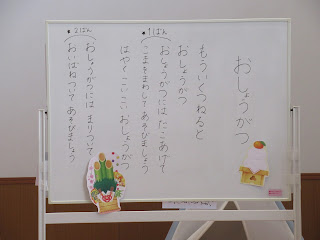 おしょうがつ
もういくつねると
おしょうがつ
1ばん
おしょうがつには たこあげて
こまをまわして あそびましょう
はやく こいこい おしょうがつ
2ばん
おしょうがつには まりついて
おいばねついて あそびましょう